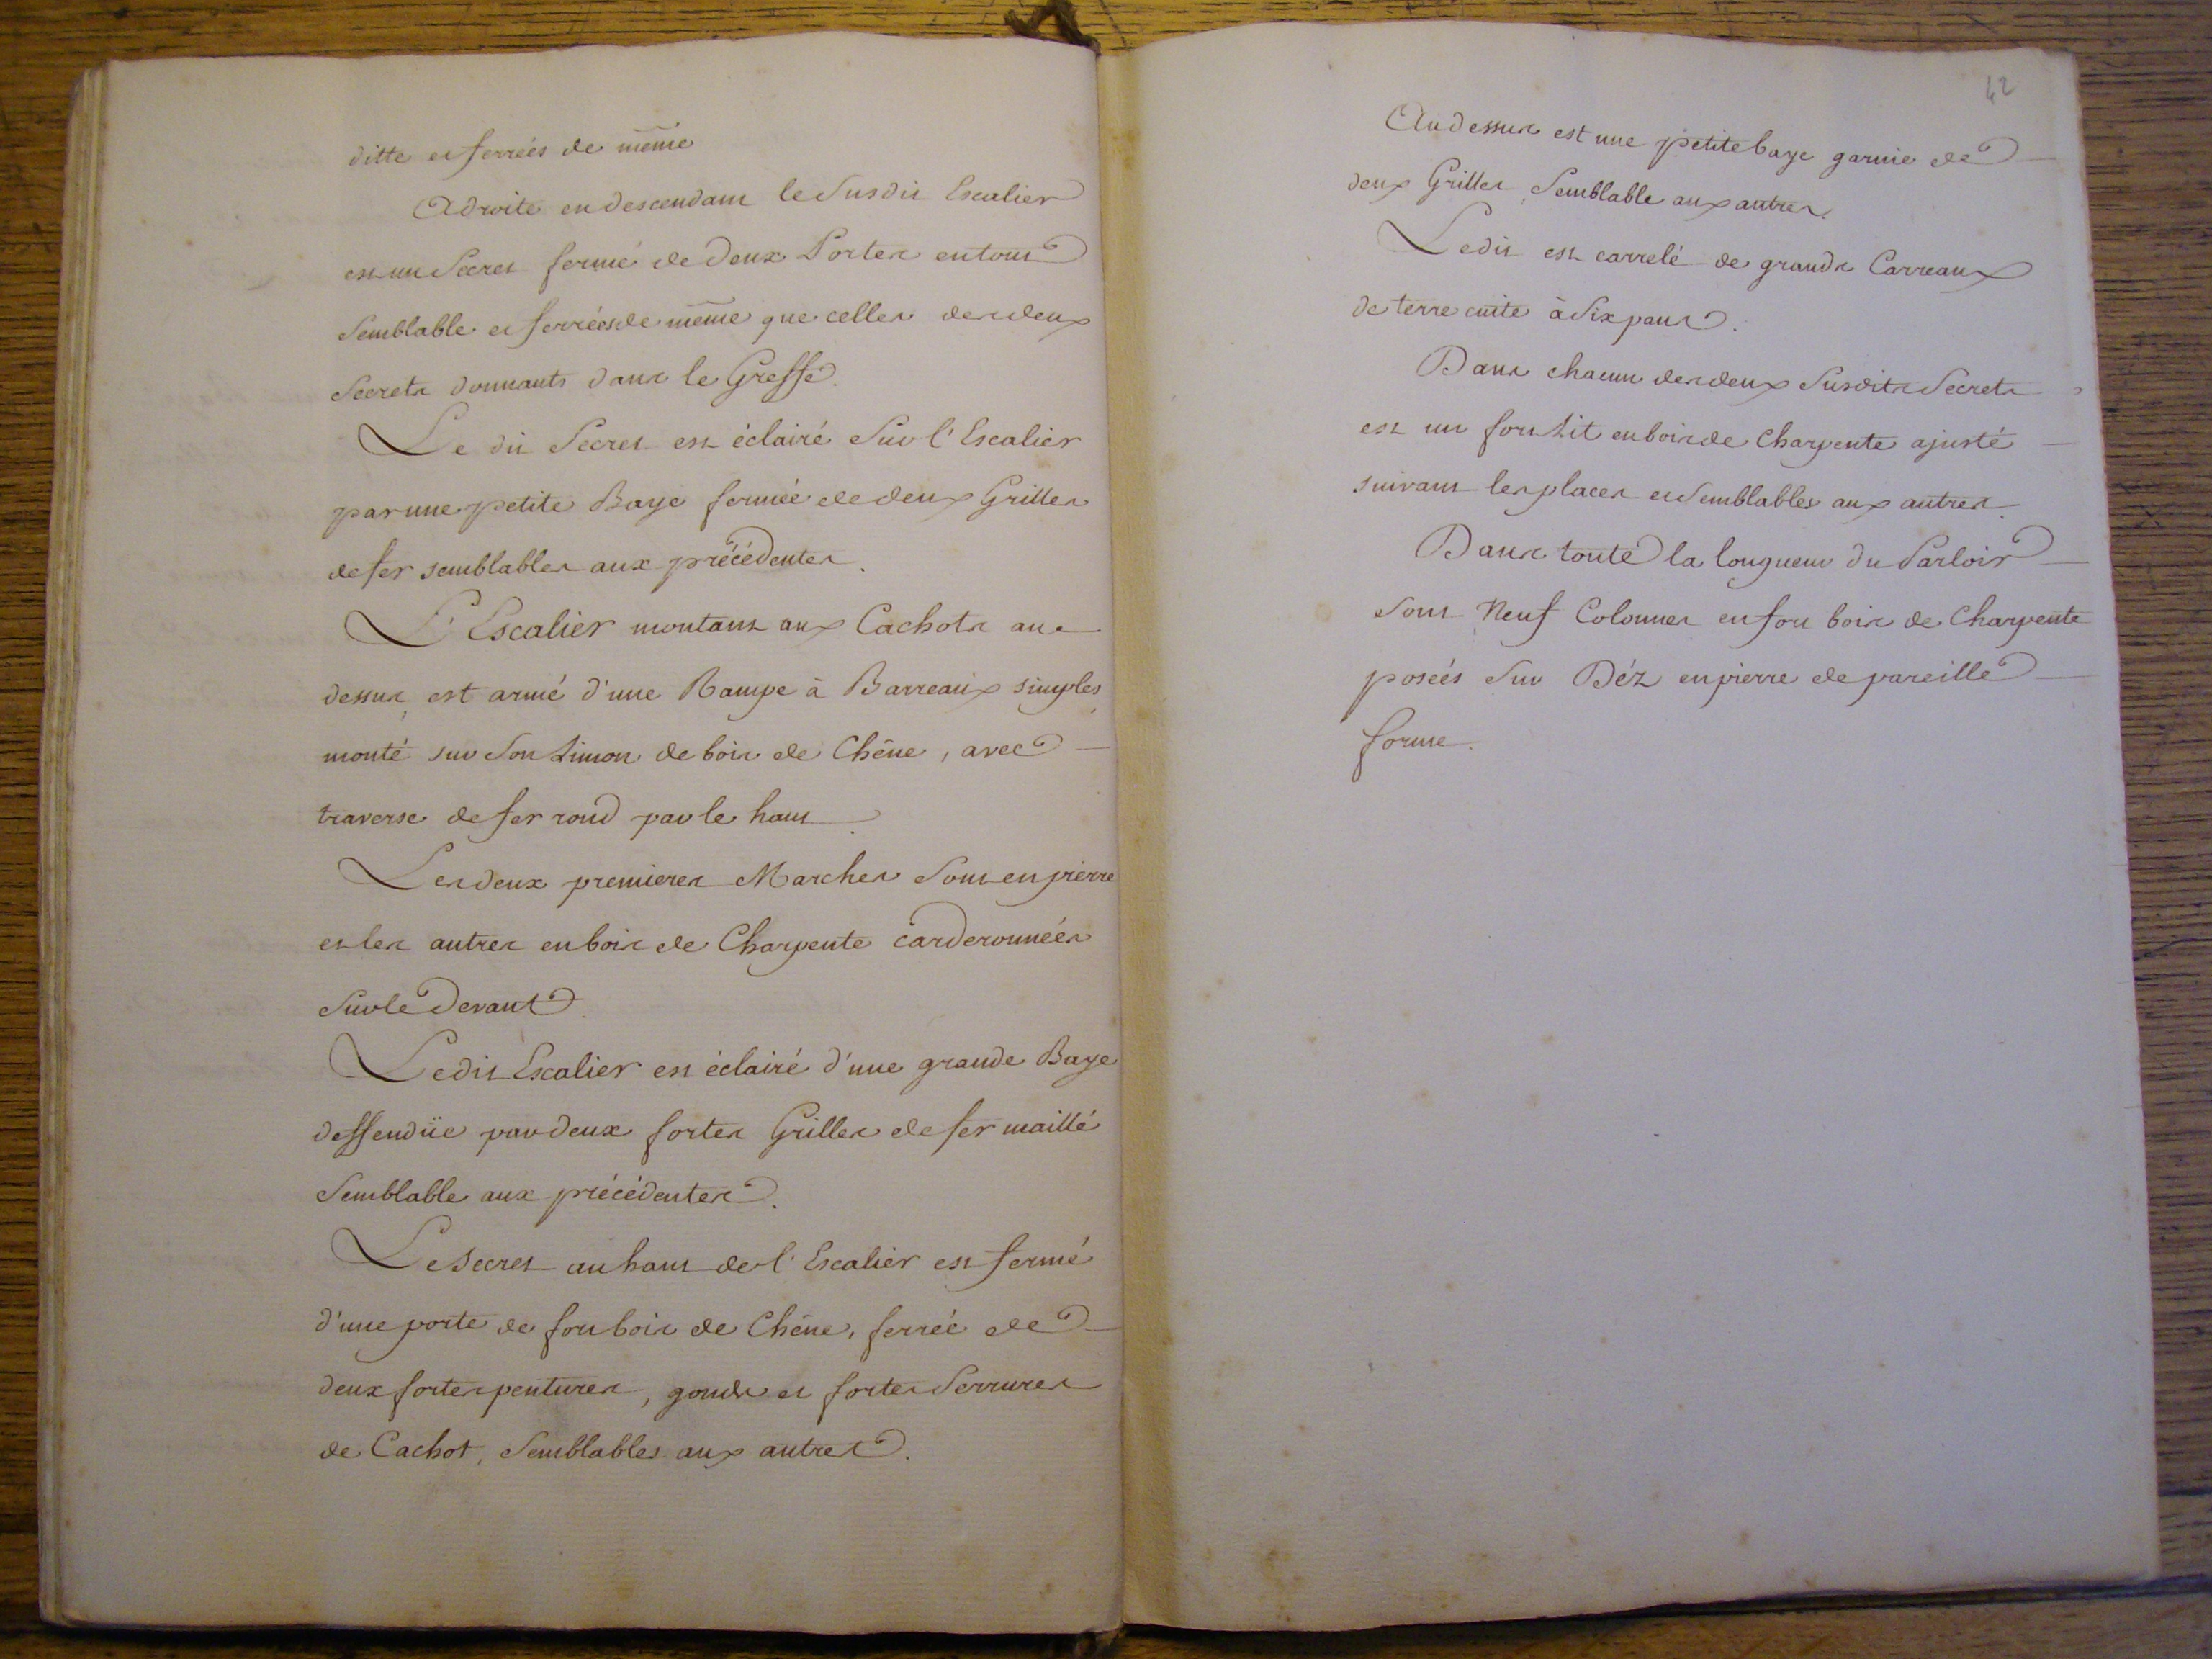 ditte et ferreés de même
A droite en descendant le Susdit Escalier
est un Secret fermé de Deux Portes en tout
Semblable et ferrées de même que celles des deux
Secrets donnants dans le Greffe.
Le dit Secret est éclairé Sur l'Escalier
par une petite Baye fermée de deux Grilles
de fer semblables aux précédentes.
L'Escalier montant aux Cachots au
dessus est armé d'une Rampe à Barreaux simples,
monté sur Son Limon de bois de Chêne, avec
traverse de fer rond par le haut.
Les deux premieres Marches Sont en pierre
et les autres en bois de Charpente carderonnées
Sur le Devant.
Ledit Escalier est éclairé d'une grande Baye
deffendüe par deux fortes Grilles de fer maillé
Semblable aux précédentes.
Le Secret au haut de l'Escalier est fermé
d'une porte de fort bois de Chêne, ferrée de
deux fortes pentures, gonds et fortes Serrures
de Cachot, Semblables aux autres.
42
Au dessus est une petite baye garnie de
deux Grilles Semblable aux autres.
Ledit est carrelé de grands Carreaux
de terre cuite à Six pans.
Dans chacun des deux Susdits Secrets
est un fort Lit en bois de Charpente ajusté
suivant les places et Semblables aux autres.
Dans toute la longueur du Parloir
Sont Neuf Colonnes en fort bois de Charpente
poseés Sur Déz en pierre de pareille
forme.